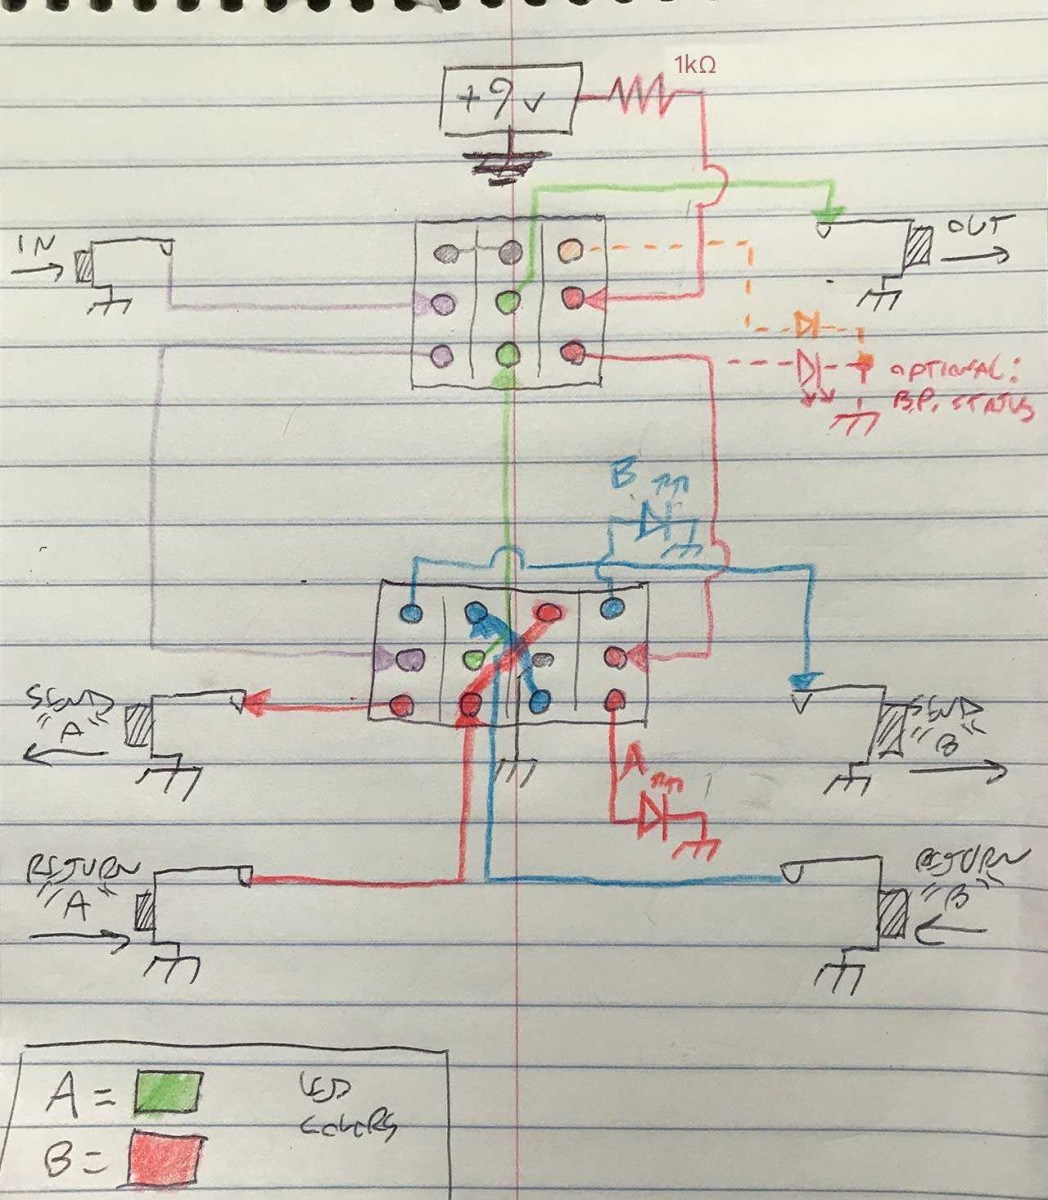 1kΩ
+9v
IN
OUT
OPTIONAL:
B.P. STATUS
B
SEND
"A"
SEND
"B"
A
RETURN
"A"
RETURN
"B"
A =
LED
COLORS
B =